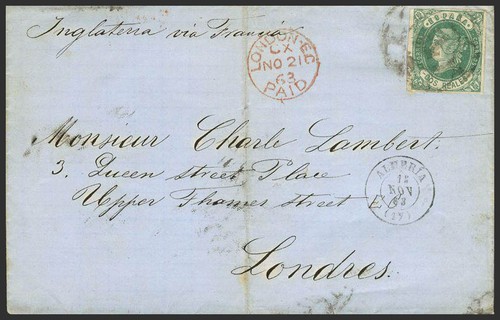 Inglaterra via Francia
LONDON·E.C
CX
NO 21
63
PAID
DOS REALES
Monsieur Charle Lambert.
3. Queen street Place
Upper Thames street
ALMERIA
15
NOV
63
Londres.